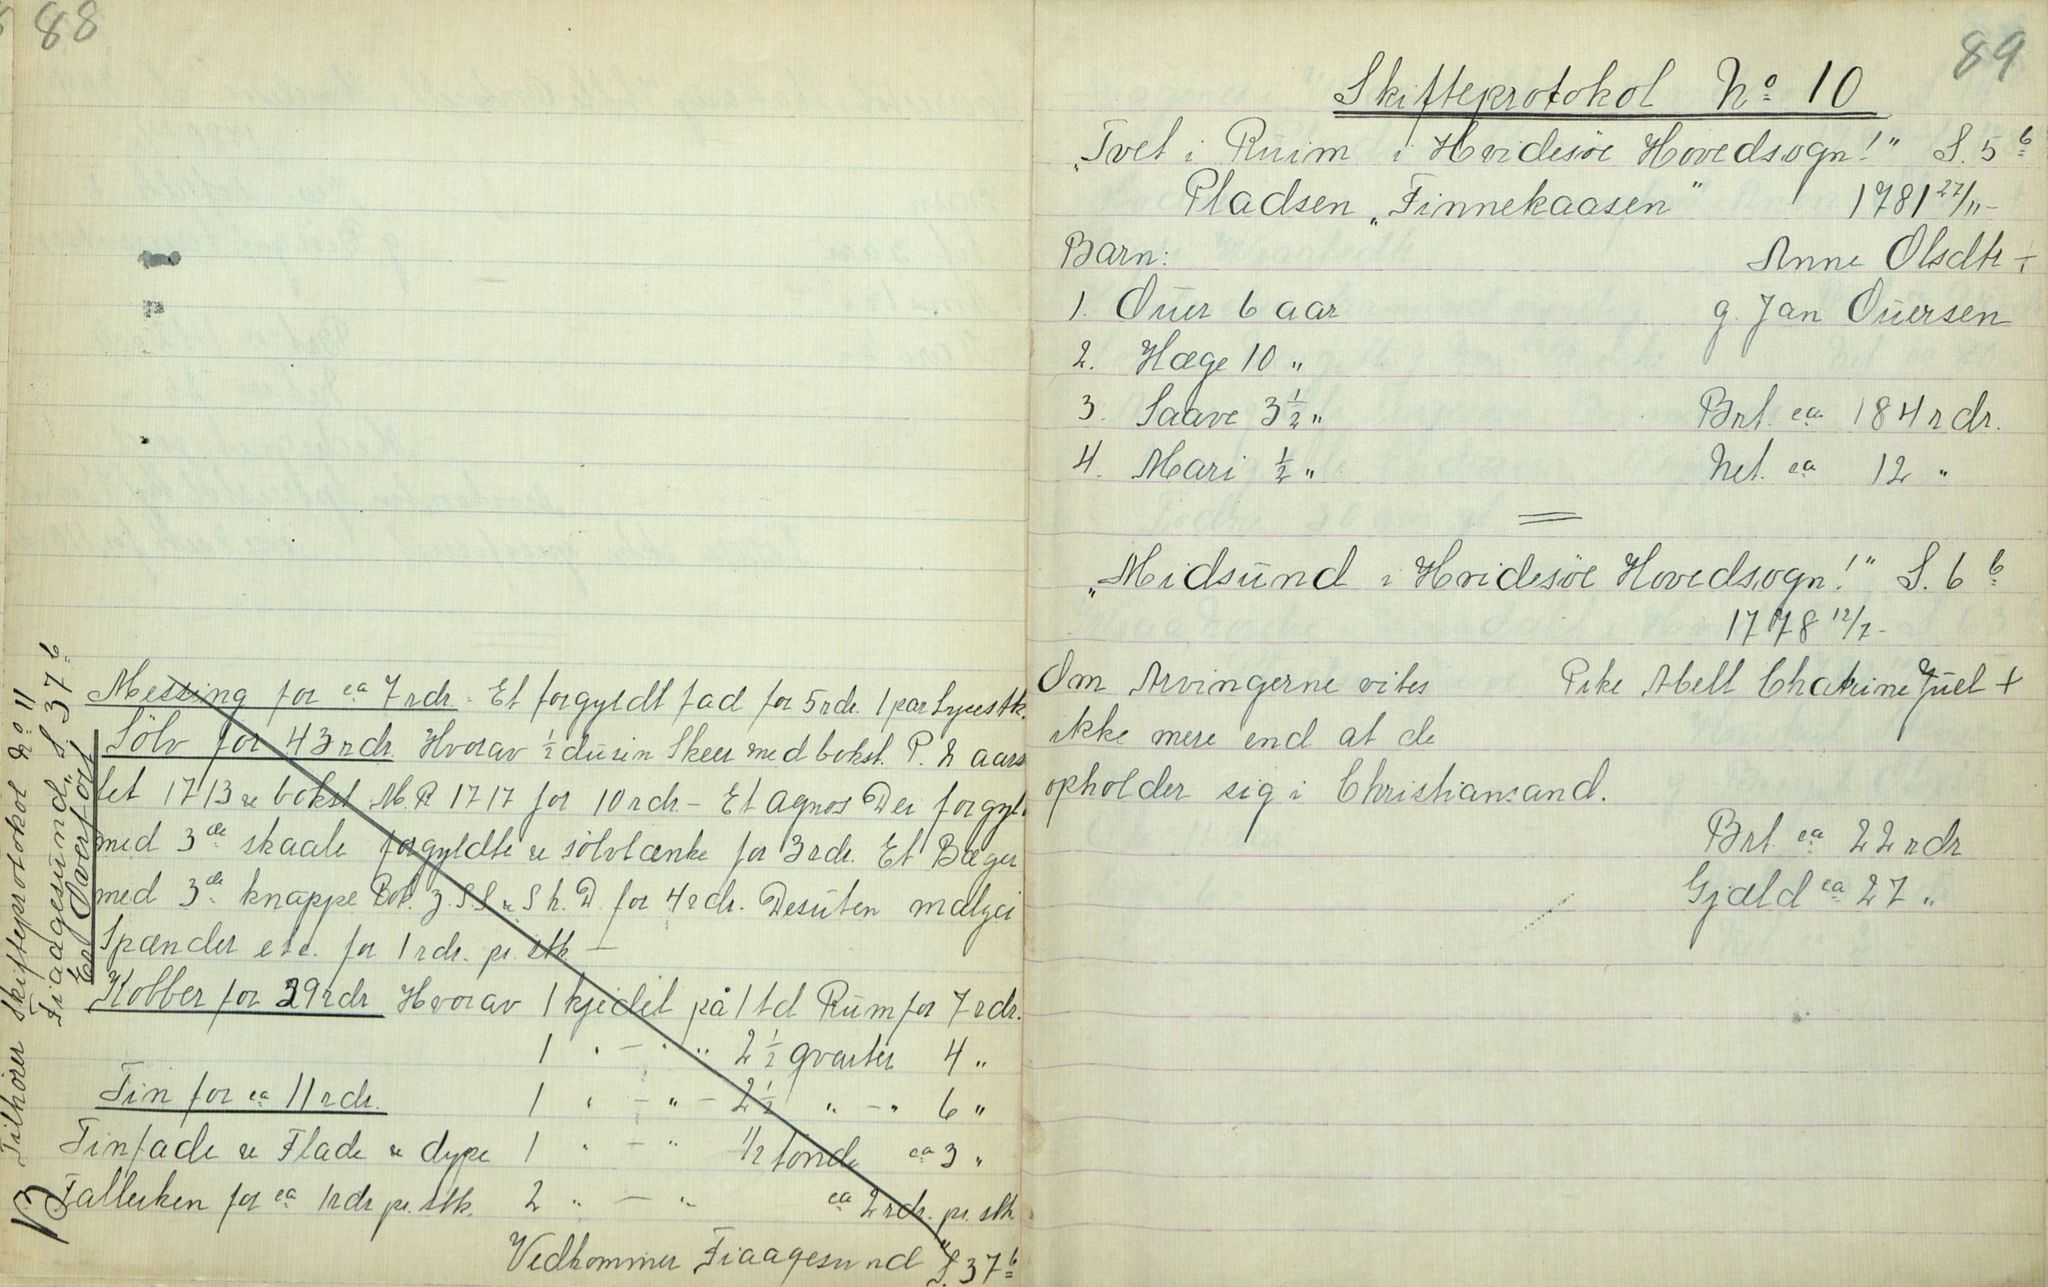 88
Messing for ca 7 rdr. Et forgyldt fad for 5 rdr. 1 par Lysestk.
Sölv for 43 rdr. Hvorav ½ dusin Skeer med bokst. P. 2 aars
tet 1713 & bokst M.R 1717 for 10 rdr - Et Agnos Dei forgylt
med 3de skaale forgyldte & sölvlænke for 3 rdr. Et Bæger
med 3de knappe Bok. J.S.S & S h. D. for 4 rdr. Desuten malyei
Spænder etc. for 1 rdr. pr. stk —
Kobber for 39 rdr Hvorav 1 kjedel på 1 td Rum for 7 rdr.
1 " — " " 2 ½ qvarter 4 "
Tin for ca 11 rdr. 1 " — " — 2 ½ " — " 6 "
Tinfade & Flade & dype 1 " — " 1/2 tönde ca 3 "
Tallerken for ca 1 rdr pr. stk. 2 " — " ca 2 rdr. pr. stk.
Vedkommer Fiaagesund" S. 37 b
B Tilhörer Skifteprotokol No 11
Fiaagesund, S. 37 b
Er Overfört
89
Skifteprotokol No 10
"Tvet i Ruim i Hvidesöe Hovedsogn!" S. 5 b
Pladsen "Finnekaasen" 1781 27/11-
Barn: Anne Olsdtr +
1. Ouer 6 aar g. Jan Ouersen
2. Hæge 10 "
3. Saave 3 ½ " Brt. ca 184 rdr.
4. Mari ½ " Net. ca 12 "
"Midsund i Hvidesöe Hovedsogn!" S. 6 b
1778 12/7-
Om Arvingerne vites Pike Abell Chatrine Juel +
ikke mere end at de
opholder sig i Christiansand.
Brt ca 22 rdr
Gjæld ca 27 "